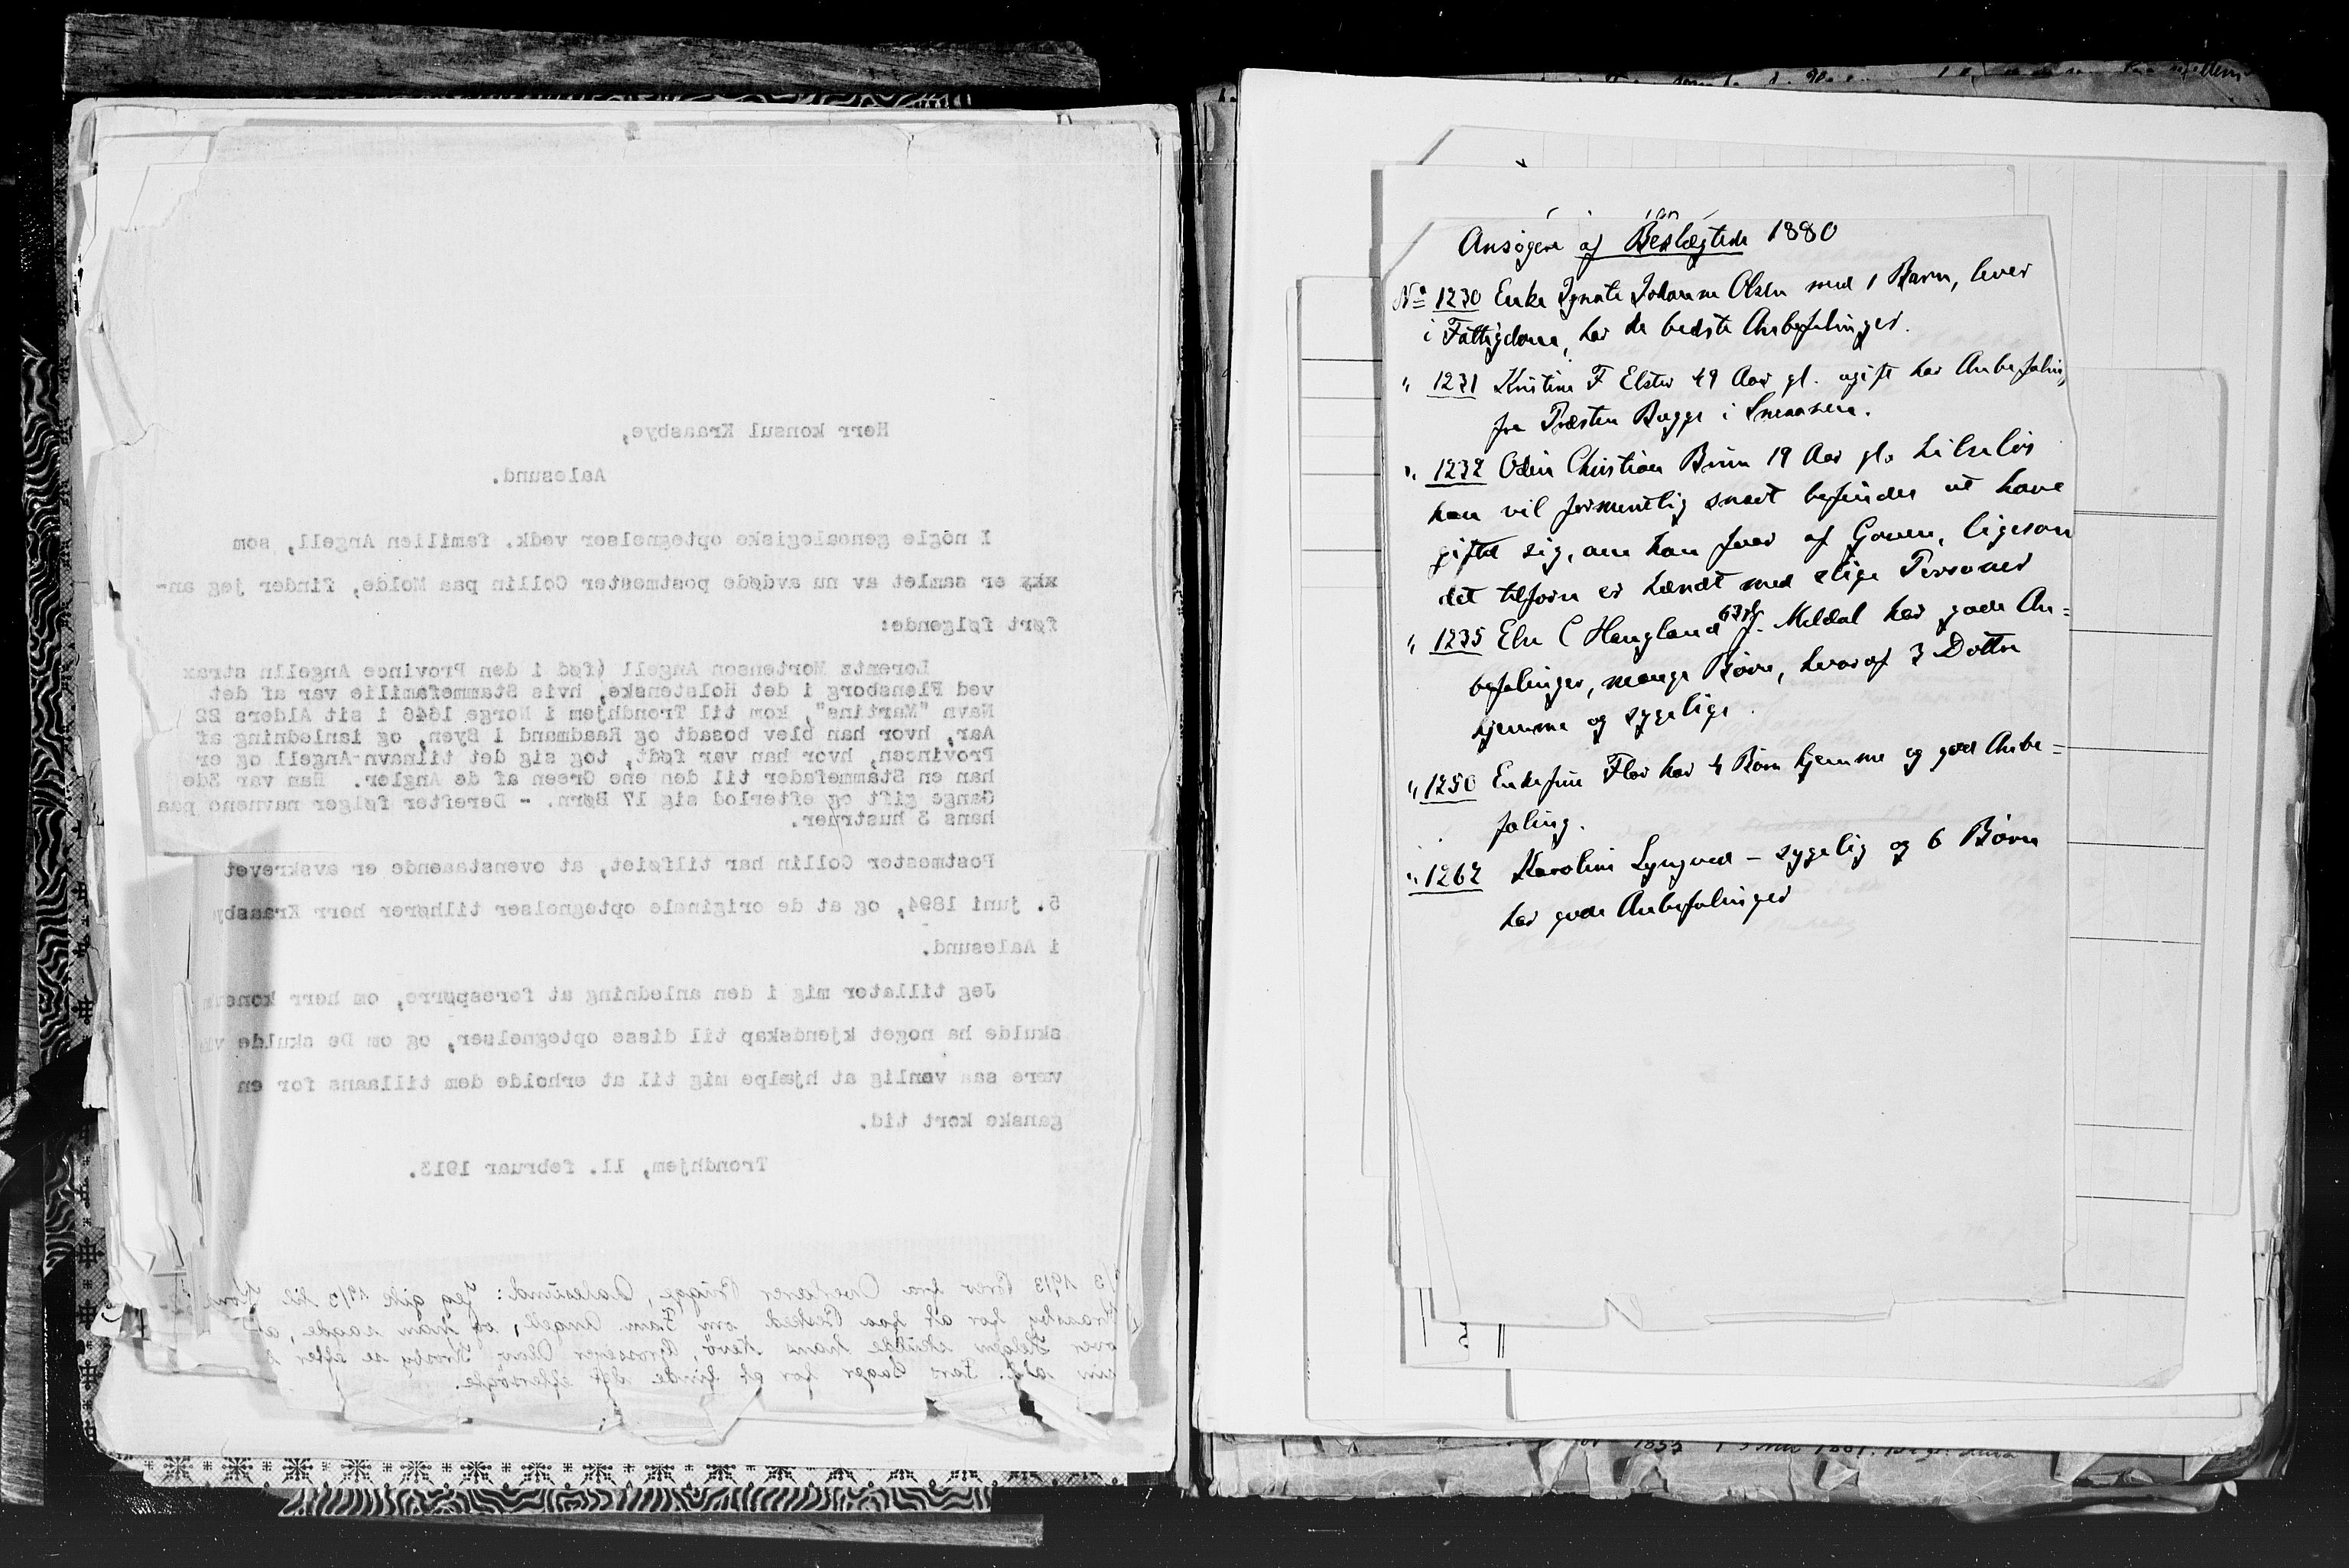 Herr konsul Kraasbye,
Aalesund.
I nögle genealogiske optegnelser vedk. familien Angell, som
er samlet av nu avdøde postmester Collin paa Molde, finder jeg an-
ført følgende:
Lorentz Mortenson Angell (fød i den Province Angelln strax
ved Flensborg i det Holstenske, hvis Stammefamilie var af det
Navn "Martins", kom til Trondhjem i Norge 1646 i sit Alders 22
Aar, hvor han blev bosadt og Raadmand i Byen, og ianledning af
Provincen, hvor han var født, tog sig det tilnavn-Angell og er
han en Stammefader til den ene Green af de Angler. Han var 3de
Gange gift og efterlod sig 17 Børn. - Derefter følger navnene paa
hans 3 hustruer.
Postmester Collin har tilføiet, at ovenstaaende er avskrevet
5. juni 1894, og at de originale optegnelser tilhører herr Kraasby
i Aalesund.
Jeg tillater mig i den anledning at forespørre, om herr konsu
skulde ha noget kjendskap til disse optegnelser, og om De skulde
være saa venlig at hjælpe mig til at erholde dem tillaans for en
ganske kort tid.
Trondhjem, 11. februar 1913.
/3 1913 Brev fra Overlærer Brigge, Aalesund: Jeg gik 19/3 til
Kraasby for at faa Besked om Fam. Angell, og han sagde, at
over Helgen skulde hans Nevö, Grosserer Olav Krosby se efter i
sin afd. Fars Sager for at finde det eftersøgte.
Ansøgere af Beslægtede 1880
No 1230 Enke Johanne Olsen med 1 Barn, lever
i Fattigdom, har de bedste Anbefalinger.
" 1231 Kristine F Elster 49 Aar gl. ugift har Anbefaling
fra Præsten Bugge i Snaasen.
" 1232 Odin Christian Brun 19 Aar gl.
han vil formentlig snart befindes at have
giftet sig, om han faar af Gaven, ligesom
det tilforn er hændt med slige Personer
" 1235 Eln C Haugland f. Meldal har gode An=
befalinger, mange Børn, hvoraf 3 Døttre
hjemme og sygelige.
" 1250 Enkefru Flor har 4 Børn hjemme og god Anbe=
faling.
" 1262 Karoline Lyngved - sygelig og 6 Børn
har gode Anbefalinger